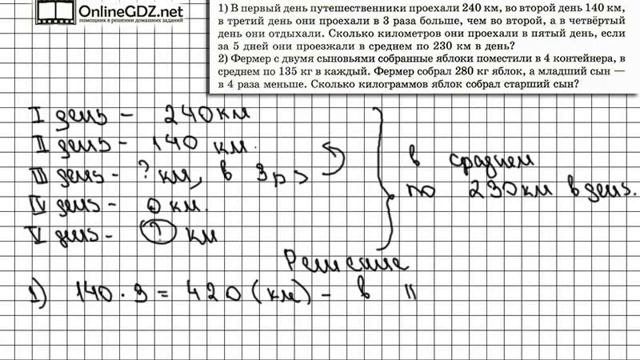 OnlineGDZ.net
помощник в решении домашних заданий
1) В первый день путешественники проехали 240 км, во второй день 140 км,
в третий день они проехали в 3 раза больше, чем во второй, а в четвёртый
день они отдыхали. Сколько километров они проехали в пятый день, если
за 5 дней они проезжали в среднем по 230 км в день?
2) Фермер с двумя сыновьями собранные яблоки поместили в 4 контейнера, в
среднем по 135 кг в каждый. Фермер собрал 280 кг яблок, а младший сын —
в 4 раза меньше. Сколько килограммов яблок собрал старший сын?
I день - 240 км
II день - 140 км.
III день - ? км, в 3 р >
IV день - 0 км.
V день - ? км
в среднем
по 230 км в день.
Решение
1) 140 · 3 = 420 (км) - в II